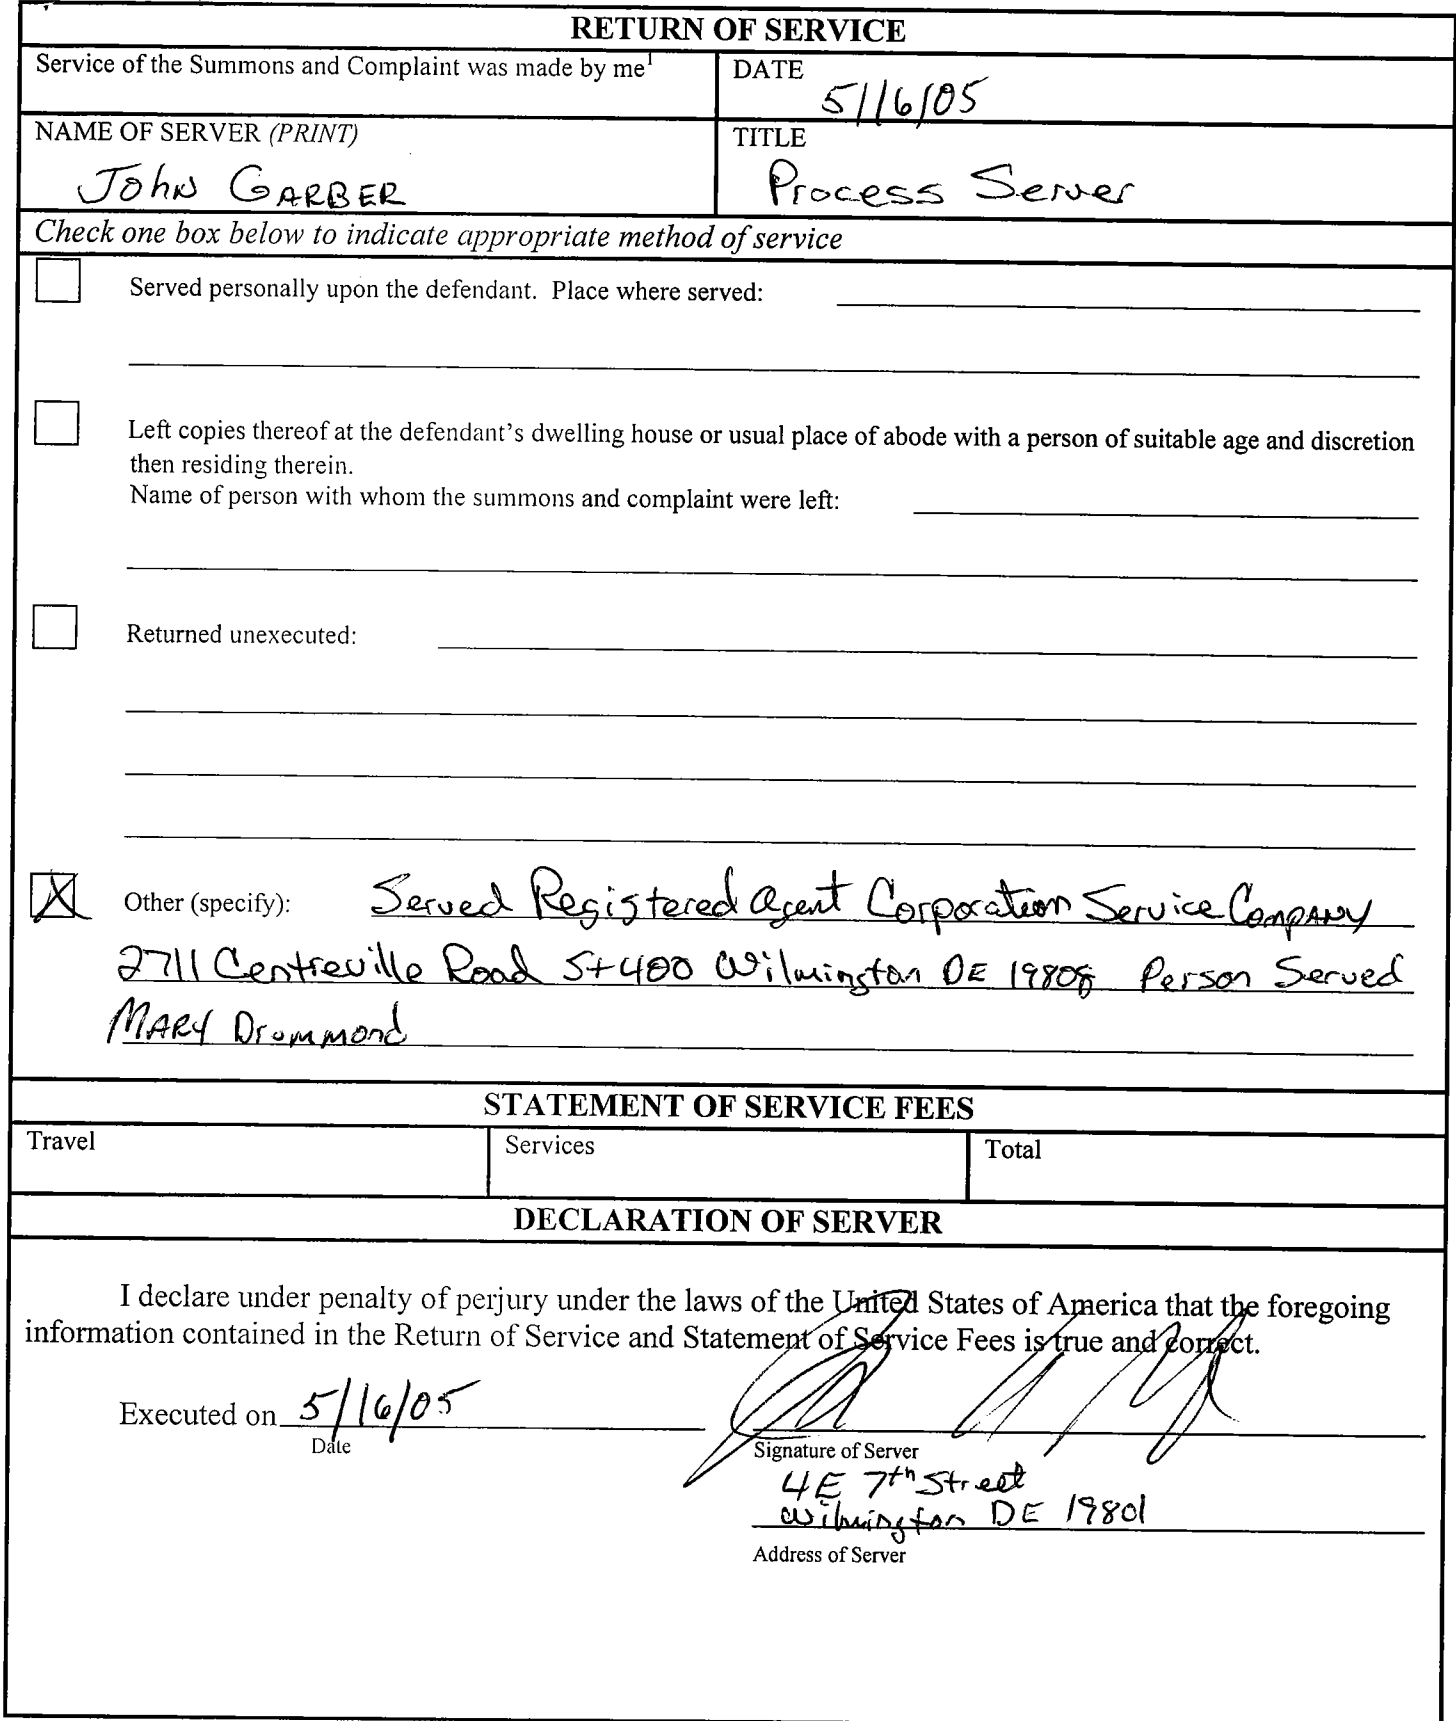 RETURN OF SERVICE
Service of the Summons and Complaint was made by me1
DATE
5/16/05
NAME OF SERVER (PRINT)
John GARBER
TITLE
Process Server
Check one box below to indicate appropriate method of service
Served personally upon the defendant. Place where served:
Left copies thereof at the defendant's dwelling house or usual place of abode with a person of suitable age and discretion
then residing therein.
Name of person with whom the summons and complaint were left:
Returned unexecuted:
X Other (specify): Served Registered Agent Corporation Service Company
2711 Centreville Road St 400 Wilmington DE 19808 Person Served
MARY Drummond
STATEMENT OF SERVICE FEES
Travel
Services
Total
DECLARATION OF SERVER
I declare under penalty of perjury under the laws of the United States of America that the foregoing
information contained in the Return of Service and Statement of Service Fees is true and correct.
Executed on 5/16/05
Date
Signature of Server
4E 7th Street
Wilmington DE 19801
Address of Server